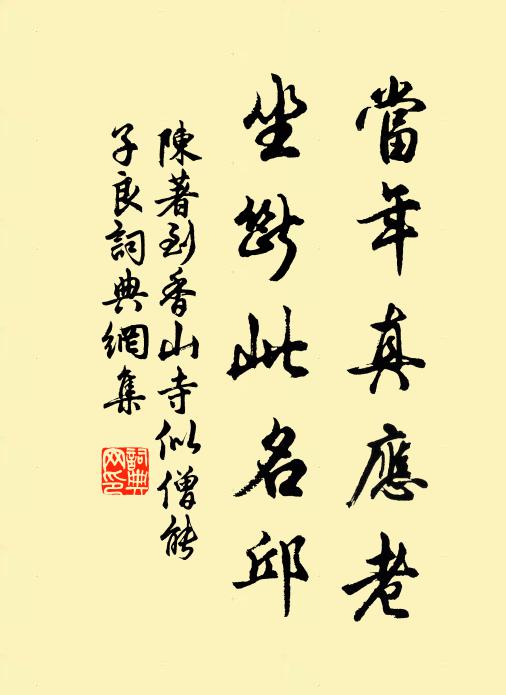 當年真應老
坐斷此名邱
陳著到香山寺似僧能
子良詞典網集
詞典网印